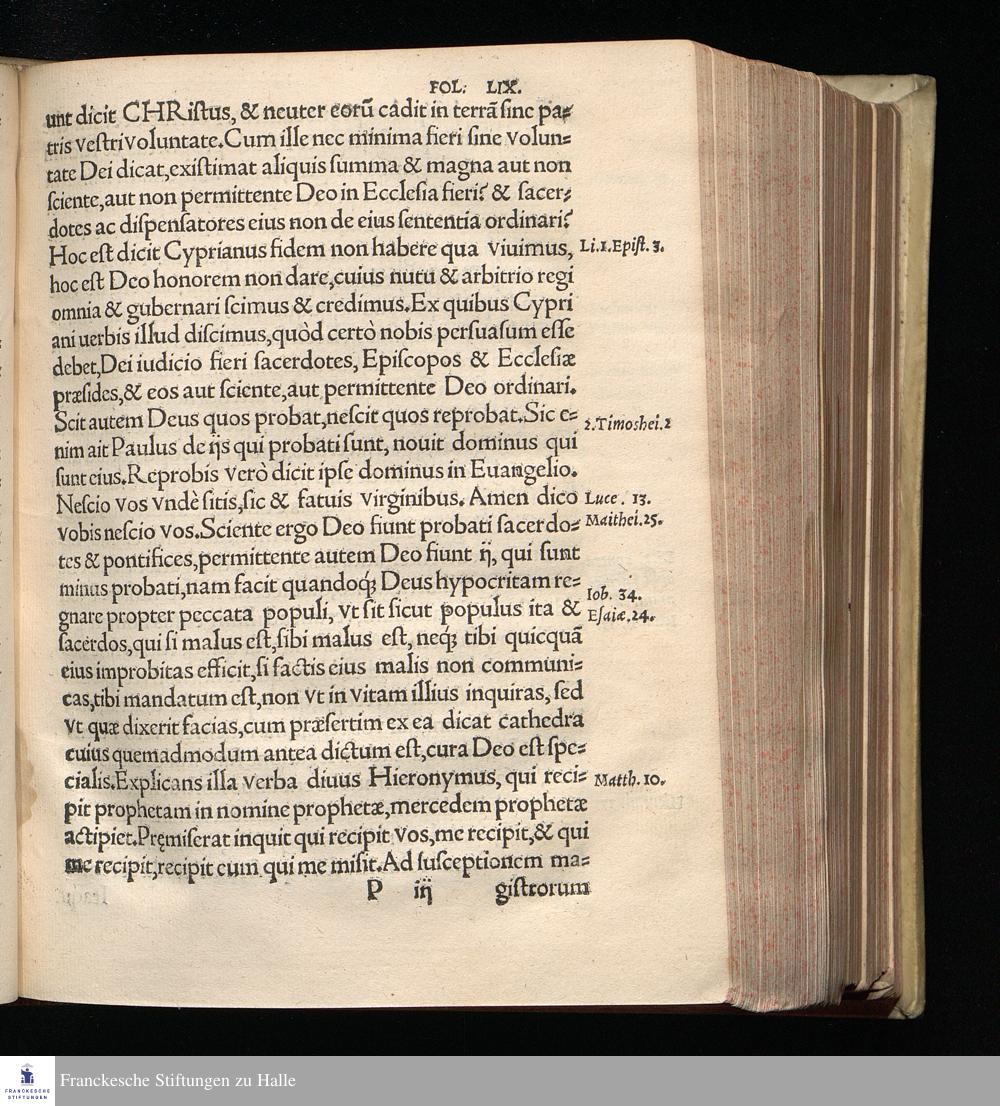 FOL: LIX.
unt dicit CHRiſtus, & neuter eorū cadit in terrā ſine pa⸗
tris veſtri voluntate. Cum ille nec minima fieri ſine volun⸗
tate Dei dicat, exiſtimat aliquis ſumma & magna aut non
ſciente, aut non permittente Deo in Eccleſia fieri? & ſacer⸗
dotes ac diſpenſatores eius non de eius ſententia ordinari?
Hoc eſt dicit Cyprianus fidem non habere qua viuimus, Li.1.Epiſt.3.
hoc eſt Deo honorem non dare, cuius nutu & arbitrio regi
omnia & gubernari ſcimus & credimus. Ex quibus Cypri
ani uerbis illud diſcimus, quòd certò nobis perſuaſum eſſe
debet, Dei iudicio fieri ſacerdotes, Epiſcopos & Eccleſiæ
præſides, & eos aut ſciente, aut permittente Deo ordinari.
Scit autem Deus quos probat, neſcit quos reprobat. Sic e⸗ 2.Timoshei.2
nim ait Paulus de ijs qui probati ſunt, nouit dominus qui
ſunt eius. Reprobis verò dicit ipſe dominus in Euangelio.
Neſcio vos vndè ſitis, ſic & fatuis virginibus. Amen dico Luce. 13.
vobis neſcio vos. Sciente ergo Deo fiunt probati ſacerdo⸗ Maithei.25.
tes & pontifices, permittente autem Deo fiunt ij, qui ſunt
minus probati, nam facit quandoqꝫ Deus hypocritam re⸗ Iob. 34.
gnare propter peccata populi, vt ſit ſicut populus ita & Eſaiæ.24.
ſacerdos, qui ſi malus eſt, ſibi malus eſt, neqꝫ tibi quicquā
eius improbitas efficit, ſi factis eius malis non communi⸗
cas, tibi mandatum eſt, non vt in vitam illius inquiras, ſed
vt quæ dixerit facias, cum præſertim ex ea dicat cathedra
cuius quemadmodum antea dictum eſt, cura Deo eſt ſpe⸗
cialis. Explicans illa verba diuus Hieronymus, qui reci⸗ Matth. 10.
pit prophetam in nomine prophetæ, mercedem prophetæ
actipiet. Pręmiſerat inquit qui recipit vos, me recipit, & qui
me recipit, recipit eum qui me miſit. Ad ſuſceptionem ma⸗
P iij giſtrorum
FRANCKESCHE
STIFTUNGEN
Franckesche Stiftungen zu Halle